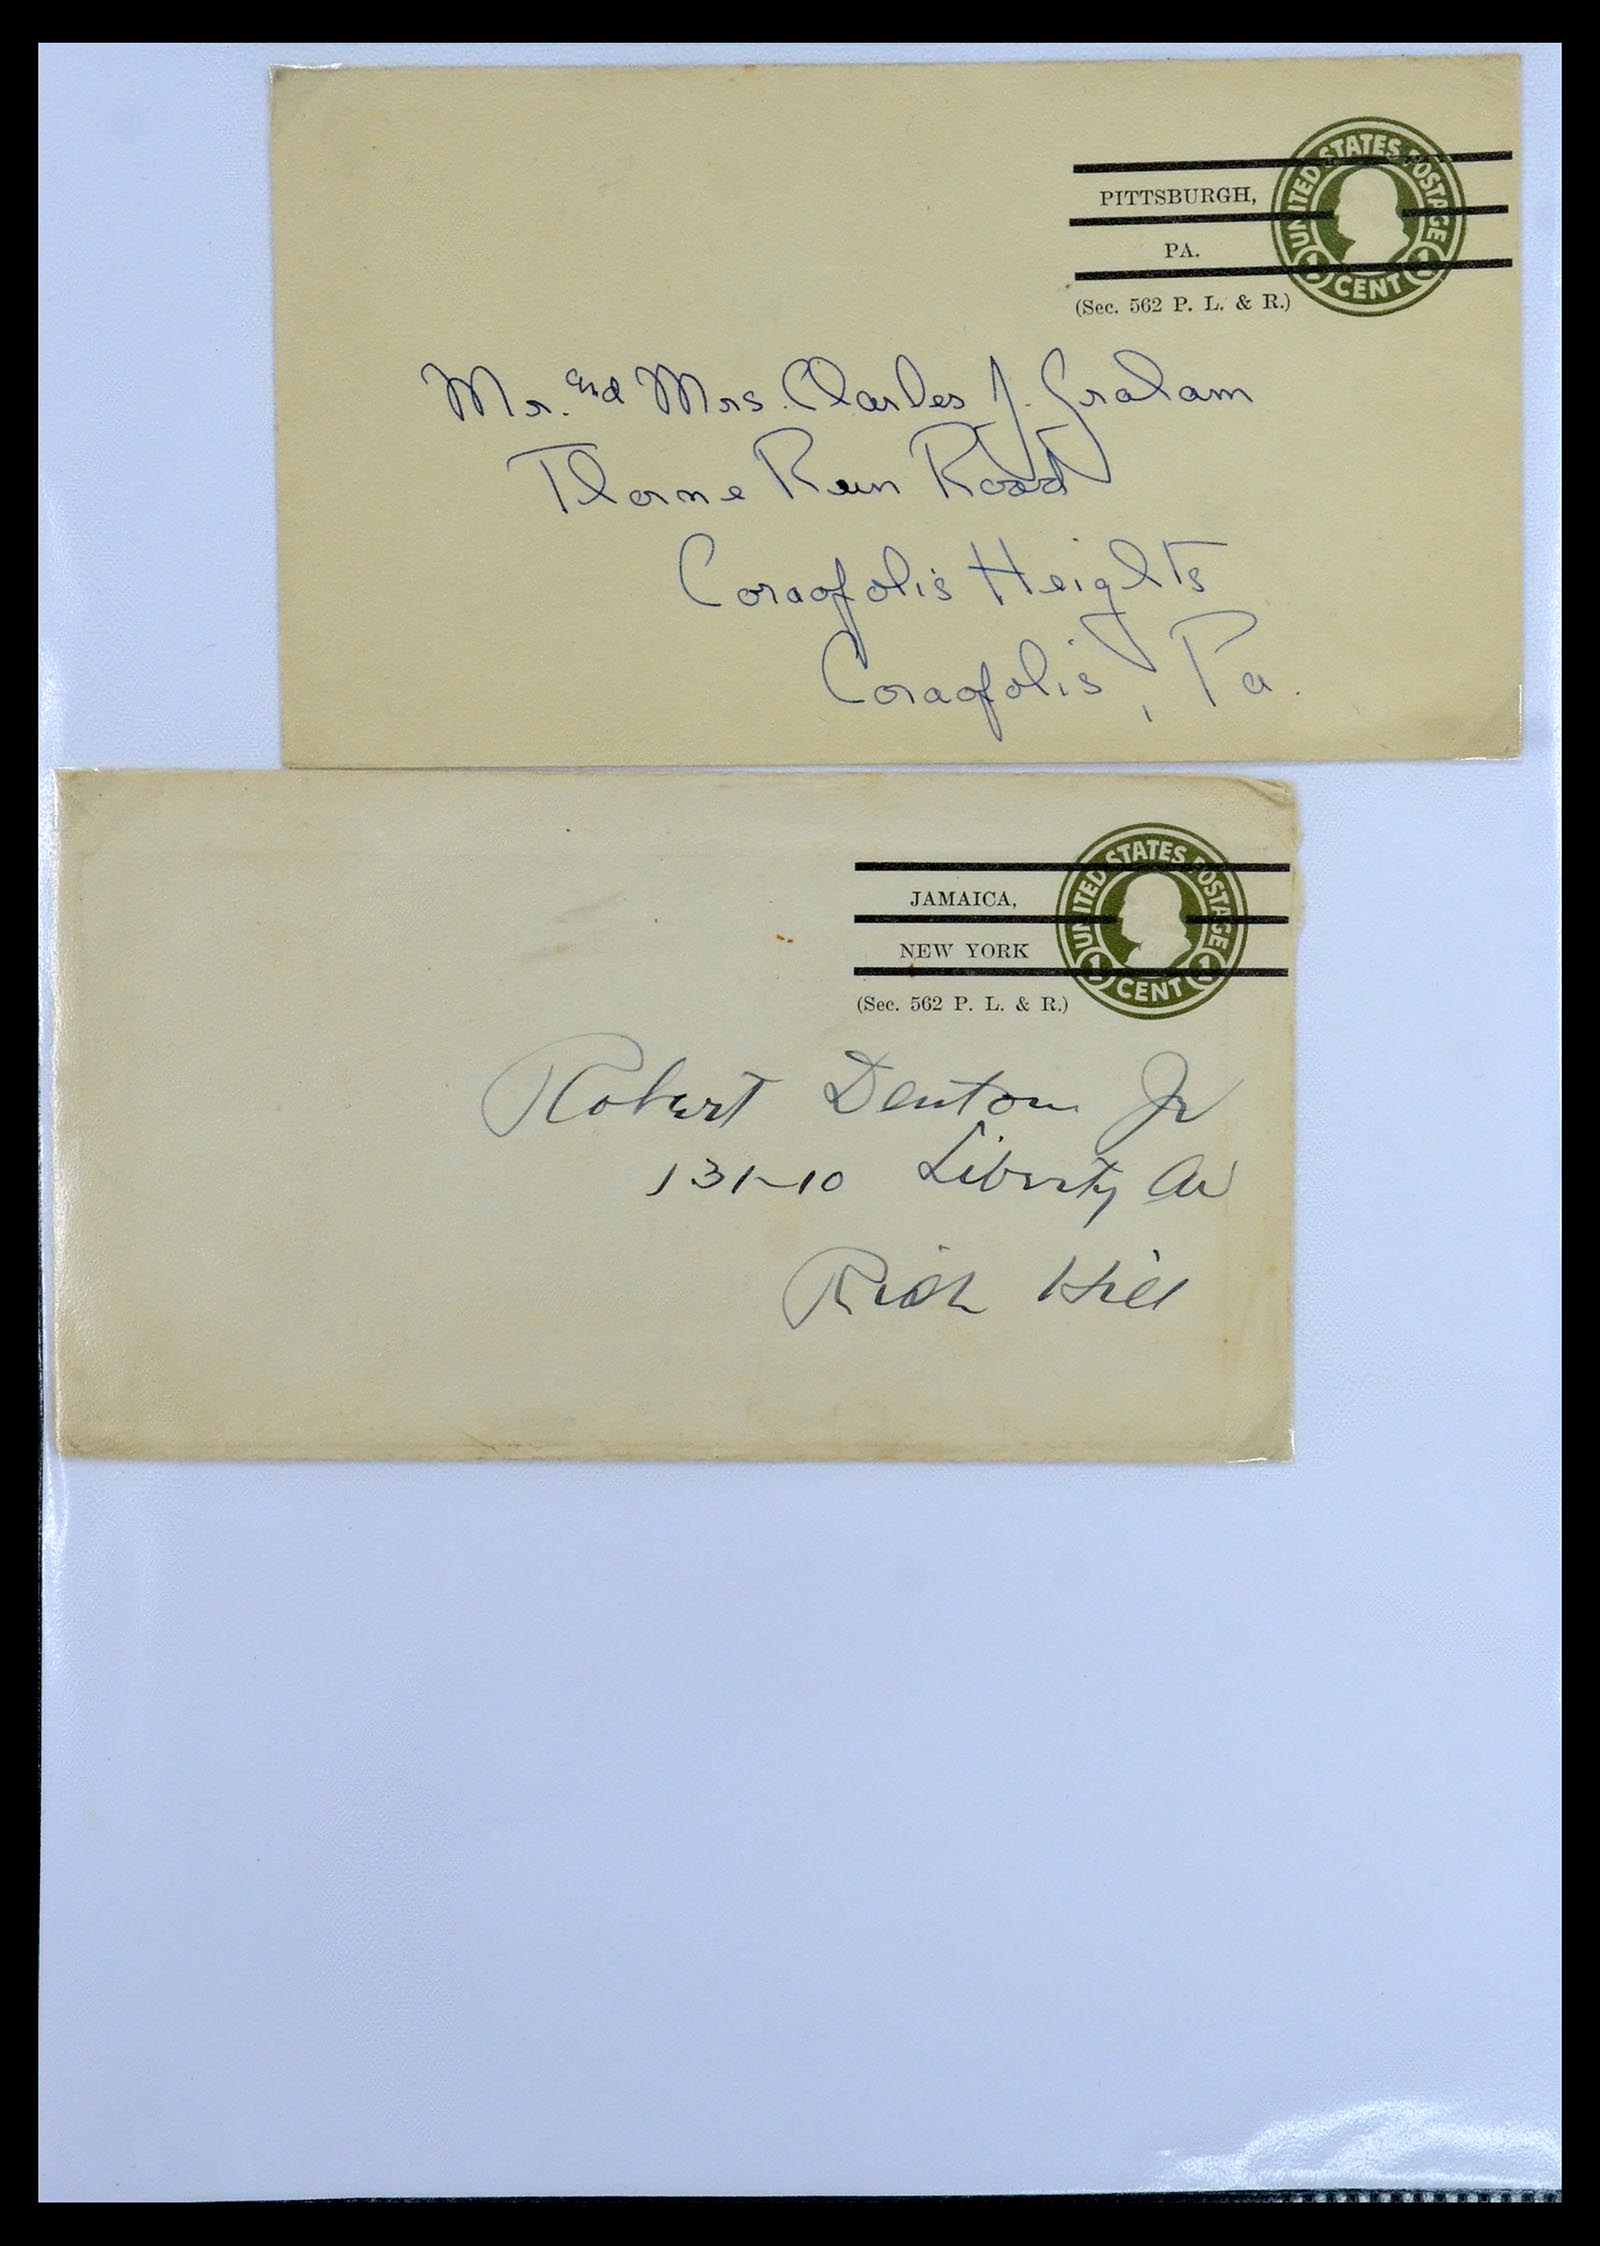 UNITED STATES POSTAGE
1 CENT 1
PITTSBURGH,
PA.
(Sec. 562 P. L. & R.)
Mr. and Mrs. Charles J. Graham
Thorne Run Road
Coraopolis Heights
Coraopolis, Pa.
UNITED STATES POSTAGE
1 CENT 1
JAMAICA,
NEW YORK
(Sec. 562 P. L. & R.)
Robert Denton Jr
131-10 Liberty Av
Rich Hill